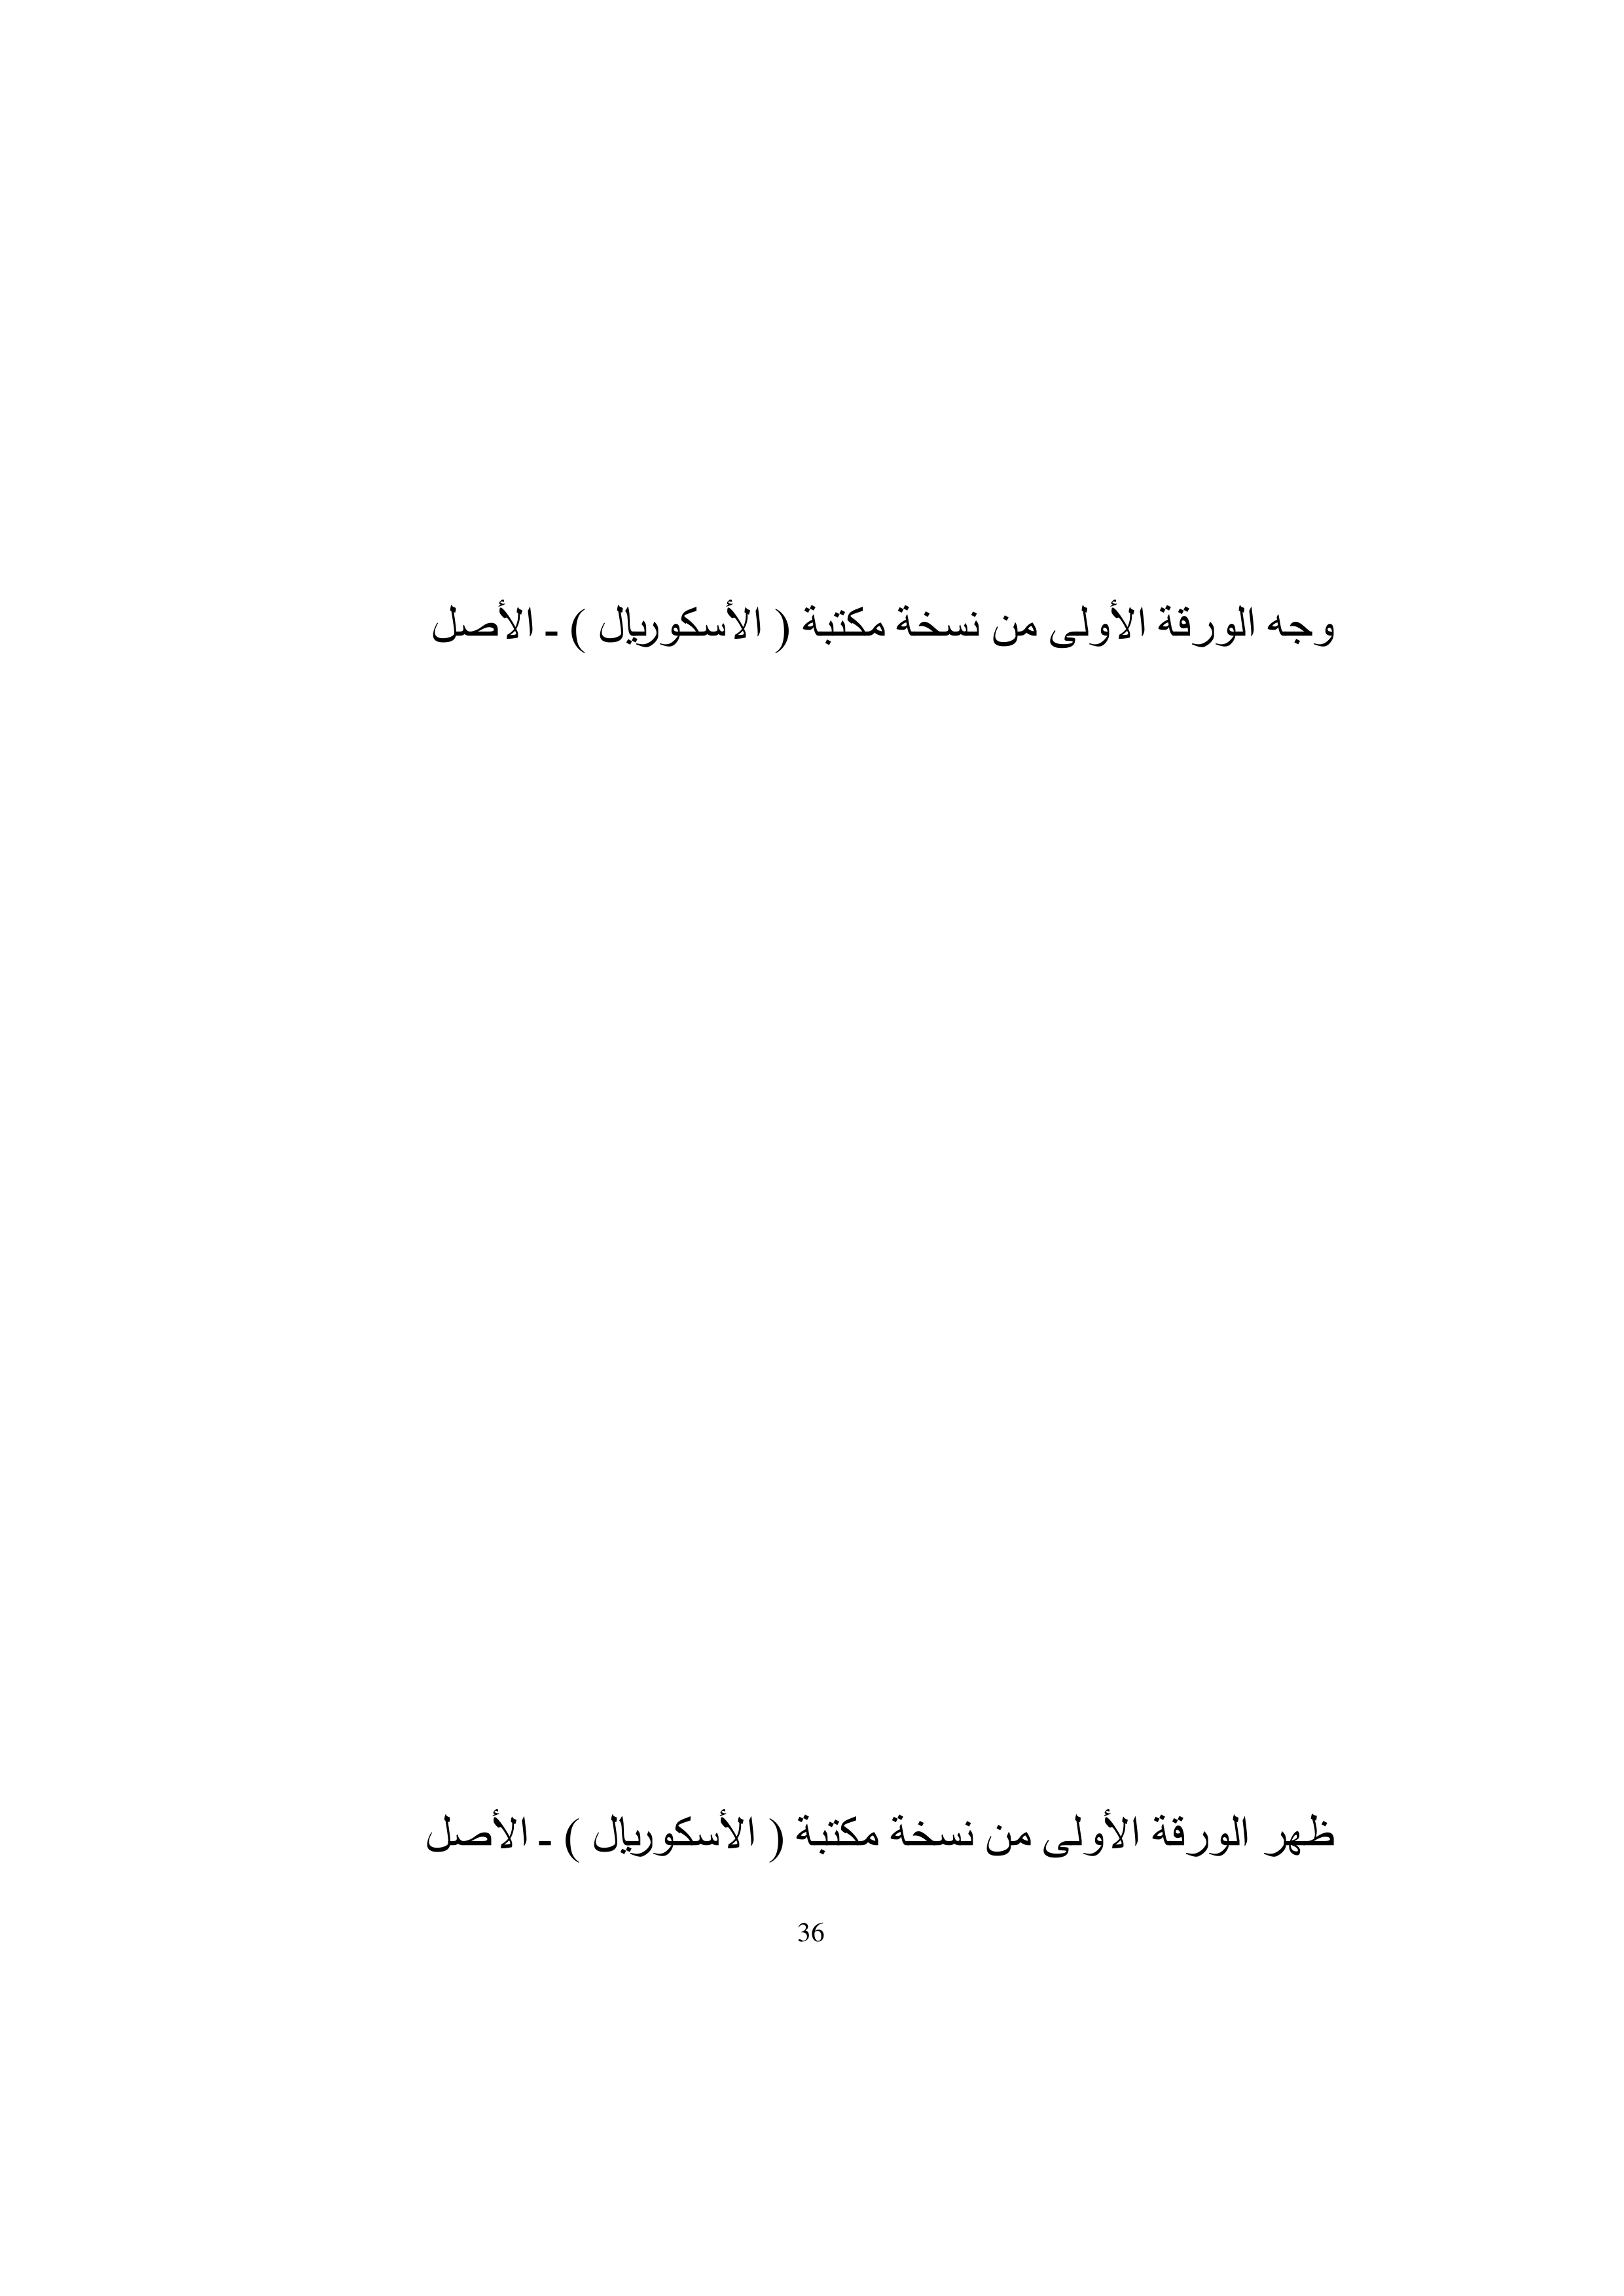 وجه الورقة الأولى من نسخة مكتبة ( الأسكوريال ) ـ الأصل
ظهر الورقة الأولى من نسخة مكتبة ( الأسكوريال ) ـ الأصل
36